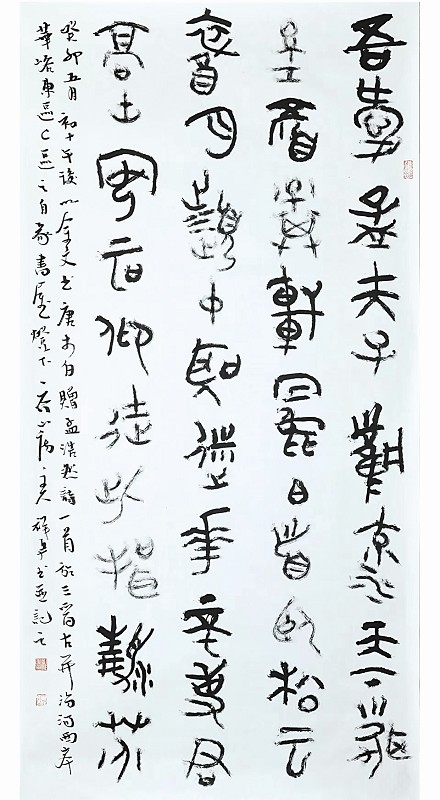 吾愛孟夫子風流天下聞
紅顏棄軒冕白首臥松雲
醉月頻中聖迷花不事君
高山安可仰徒此揖清芬
癸卯五月初十午後以金文書唐李白贈孟浩然詩一首於三晉古并汾河兩岸
東區C區之自家書屋燈下